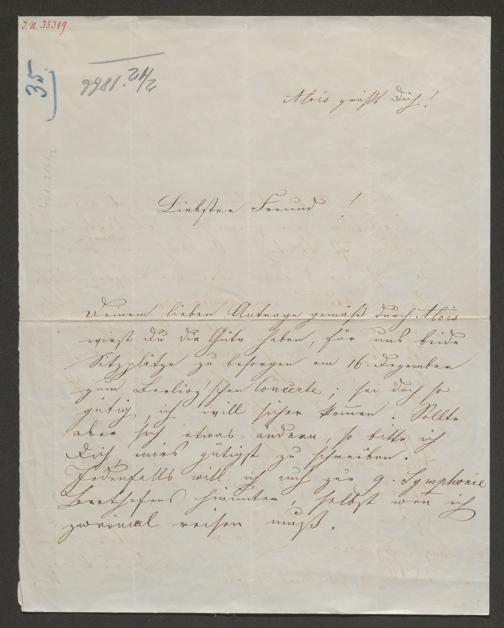 I.N. 35319
35.
2/12. 1866
Alois grüßt Dich!
Liebster Freund !
Deinem lieben Antrage gemäß durch Alois
wirst Du die Güte haben, für uns beide
Sitzplätze zu besorgen am 16. Dezember
zum Berlioz'schen Concerte; sei doch so
gütig, ich will sicher kommen. Sollte
aber sich etwas ändern, so bitte ich
Dich, mirs gütigst zu schreiben.
Jedenfalls will ich auch zur 9. Symphonie
Beethofens hinunter, selbst wenn ich
zweimal reisen muß.